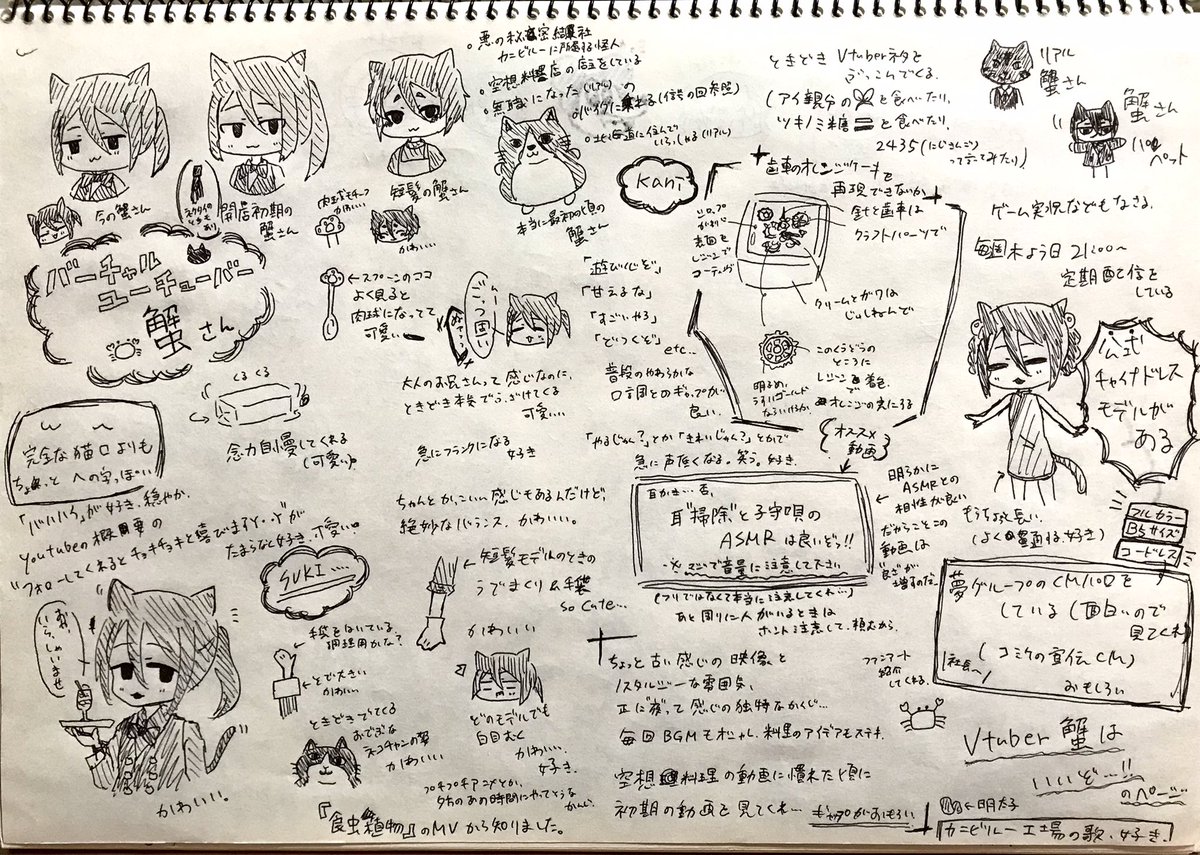 悪の秘密結社
カニビルーに所属する怪人
空想料理店の店主をしている
無職になった(リアル)の
北海道に住んで
いらっしゃる(リアル)
今の蟹さん
開店初期の
蟹さん
肉球モチーフ
かわいい
短髪の蟹さん
かわいい
本当に最初の頃の
蟹さん
バーチャル
ユーチューバー
蟹さん
←スプーンのココ
よく見ると
肉球になってて
可愛い
くるくる
念力自慢してくれる
(可愛い)
完全な猫口よりも
ちょっと への字っぽい
「バハハイ」が好き、穏やか。
youtubeの概要の
フォローしてくれるとチョキチョキと喜びますが
たまらなく好き。可愛い。
SUKI...
おお、
いらっしゃいませ
かわいい。
大人のお兄さんって感じなのに、
ときどき本気でふざけてくる
可愛い…
急にフランクになる
好き
ちゃんとかっこいい感じもあるんだけど、
絶妙なバランス、かわいい。
←短髪モデルのときの
うでまくり&手袋
so cute...
かわいい
手袋をはいている
調理用かな?
ときどきでてくる
ネコチャンの夢
かわいい
どのモデルでも
白目むく
かわいい。
好き。
『食虫植物』のMVから知りました。
Kani
「遊びいくぞ」
「甘えるな」
「すごいやろ」
「どつくぞ」
etc...
普段のやわらかな
口調とのギャップが
良い。
「やるじゃん?」とか「きれいじゃん?」とかで
急に声低くなる。笑う。好き.
ときどき Vtuberネタを
ぶっこんでくる.
(アイ親分の と食べたり、
ツキノミ糖 と食べたり、
2435(にじさんじ)
って言ってみたり)
リアル
蟹さん
蟹さん
パペット
歯車のオレンジケーキを
再現できないか
針と歯車は
クラフトパーツで
シロップ
がわりに
表面を
レジンで
コーティング
このくうどうの
ところに
レジン
で
オレンジの実にする
明るめ、
うすいゴールド
オススメ
動画
耳かき…否、
耳掃除と子守唄の
ASMRは良いぞっ!!
※マジで音量に注意して下さい
(フリではなくて本当に注意してくれ…)
あと周りに人がいるときは
ホント注意して、頼むから.
←明らかに
ASMRとの
相性が良い
だからこの
動画は
良さが
増すのだ。
ちょっと古い感じの映像と
ノスタルジーな雰囲気、
毎回BGMもオシャレ.料理のアイデアもステキ.
空想料理の動画に慣れた頃に
初期の動画を見てくれ… ギャップがおもろい
ゲーム実況などもなさる.
毎週木よう日 21:00～
定期配信を
している
公式
チャイナドレス
モデルが
ある
もうちょっと長い.
フルカラー
B5サイズ
コードレス
夢グループのCMパロを
している(面白いので
見てくれ
(コミケの宣伝CM)
社長〜
おもしろい
ファンアート
紹介
してくれる.
Vtuber 蟹は
いいぞ…!!
のページ
←明太子
カニビルー工場の歌、好き.